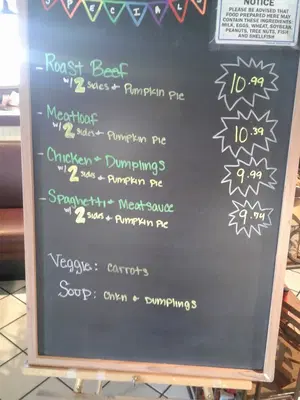 SPECIALS
NOTICE
PLEASE BE ADVISED THAT
FOOD PREPARED HERE MAY
CONTAIN THESE INGREDIENTS:
MILK, EGGS, WHEAT, SOYBEAN,
PEANUTS, TREE NUTS, FISH
AND SHELLFISH
- Roast Beef 10.99
w/ 2 sides & Pumpkin Pie
- Meatloaf 10.39
w/ 2 sides & Pumpkin Pie
- Chicken & Dumplings 9.99
w/ 2 sides & Pumpkin Pie
- Spaghetti & Meatsauce 9.54
w/ 2 sides & Pumpkin Pie
Veggie: Carrots
Soup: Chkn & Dumplings